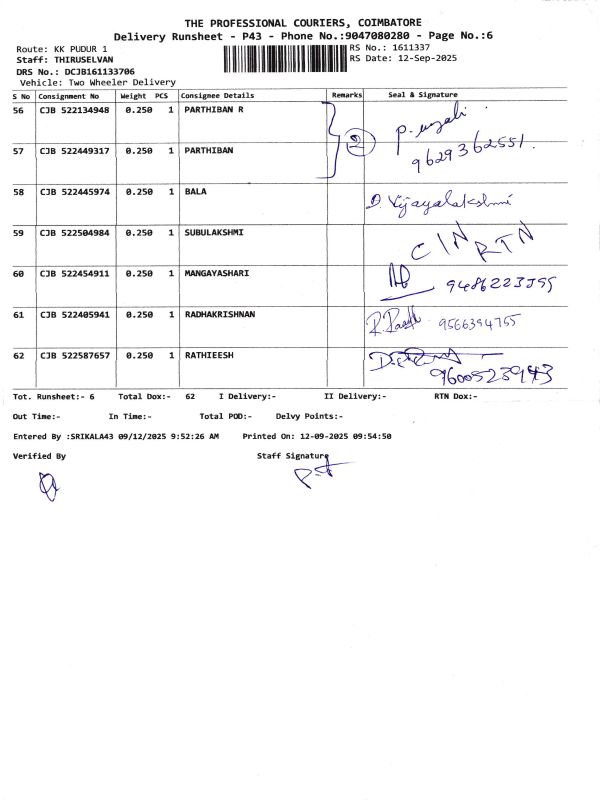 THE PROFESSIONAL COURIERS, COIMBATORE
Delivery Runsheet - P43 - Phone No.:9047080280 - Page No.:6
Route: KK PUDUR 1 RS No.: 1611337
Staff: THIRUSELVAN RS Date: 12-Sep-2025
DRS No.: DCJB161133706
Vehicle: Two Wheeler Delivery
S No Consignment No Weight PCS Consignee Details Remarks Seal & Signature
56 CJB 522134948 0.250 1 PARTHIBAN R
57 CJB 522449317 0.250 1 PARTHIBAN 2 9629362551.
58 CJB 522445974 0.250 1 BALA D. Vijayalakshmi
59 CJB 522504984 0.250 1 SUBULAKSHMI C I N R T N
60 CJB 522454911 0.250 1 MANGAYASHARI
61 CJB 522405941 0.250 1 RADHAKRISHNAN 9566394755
62 CJB 522587657 0.250 1 RATHIEESH 9600523943
Tot. Runsheet:- 6 Total Dox:- 62 I Delivery:- II Delivery:- RTN Dox:-
Out Time:- In Time:- Total POD:- Delvy Points:-
Entered By :SRIKALA43 09/12/2025 9:52:26 AM Printed On: 12-09-2025 09:54:50
Verified By Staff Signature